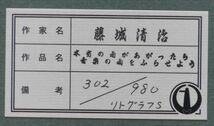 作家名 藤城清治
作品名 木魂の雨があがったら
音楽の雨をふらせよう
備考 302/980
リトグラフS